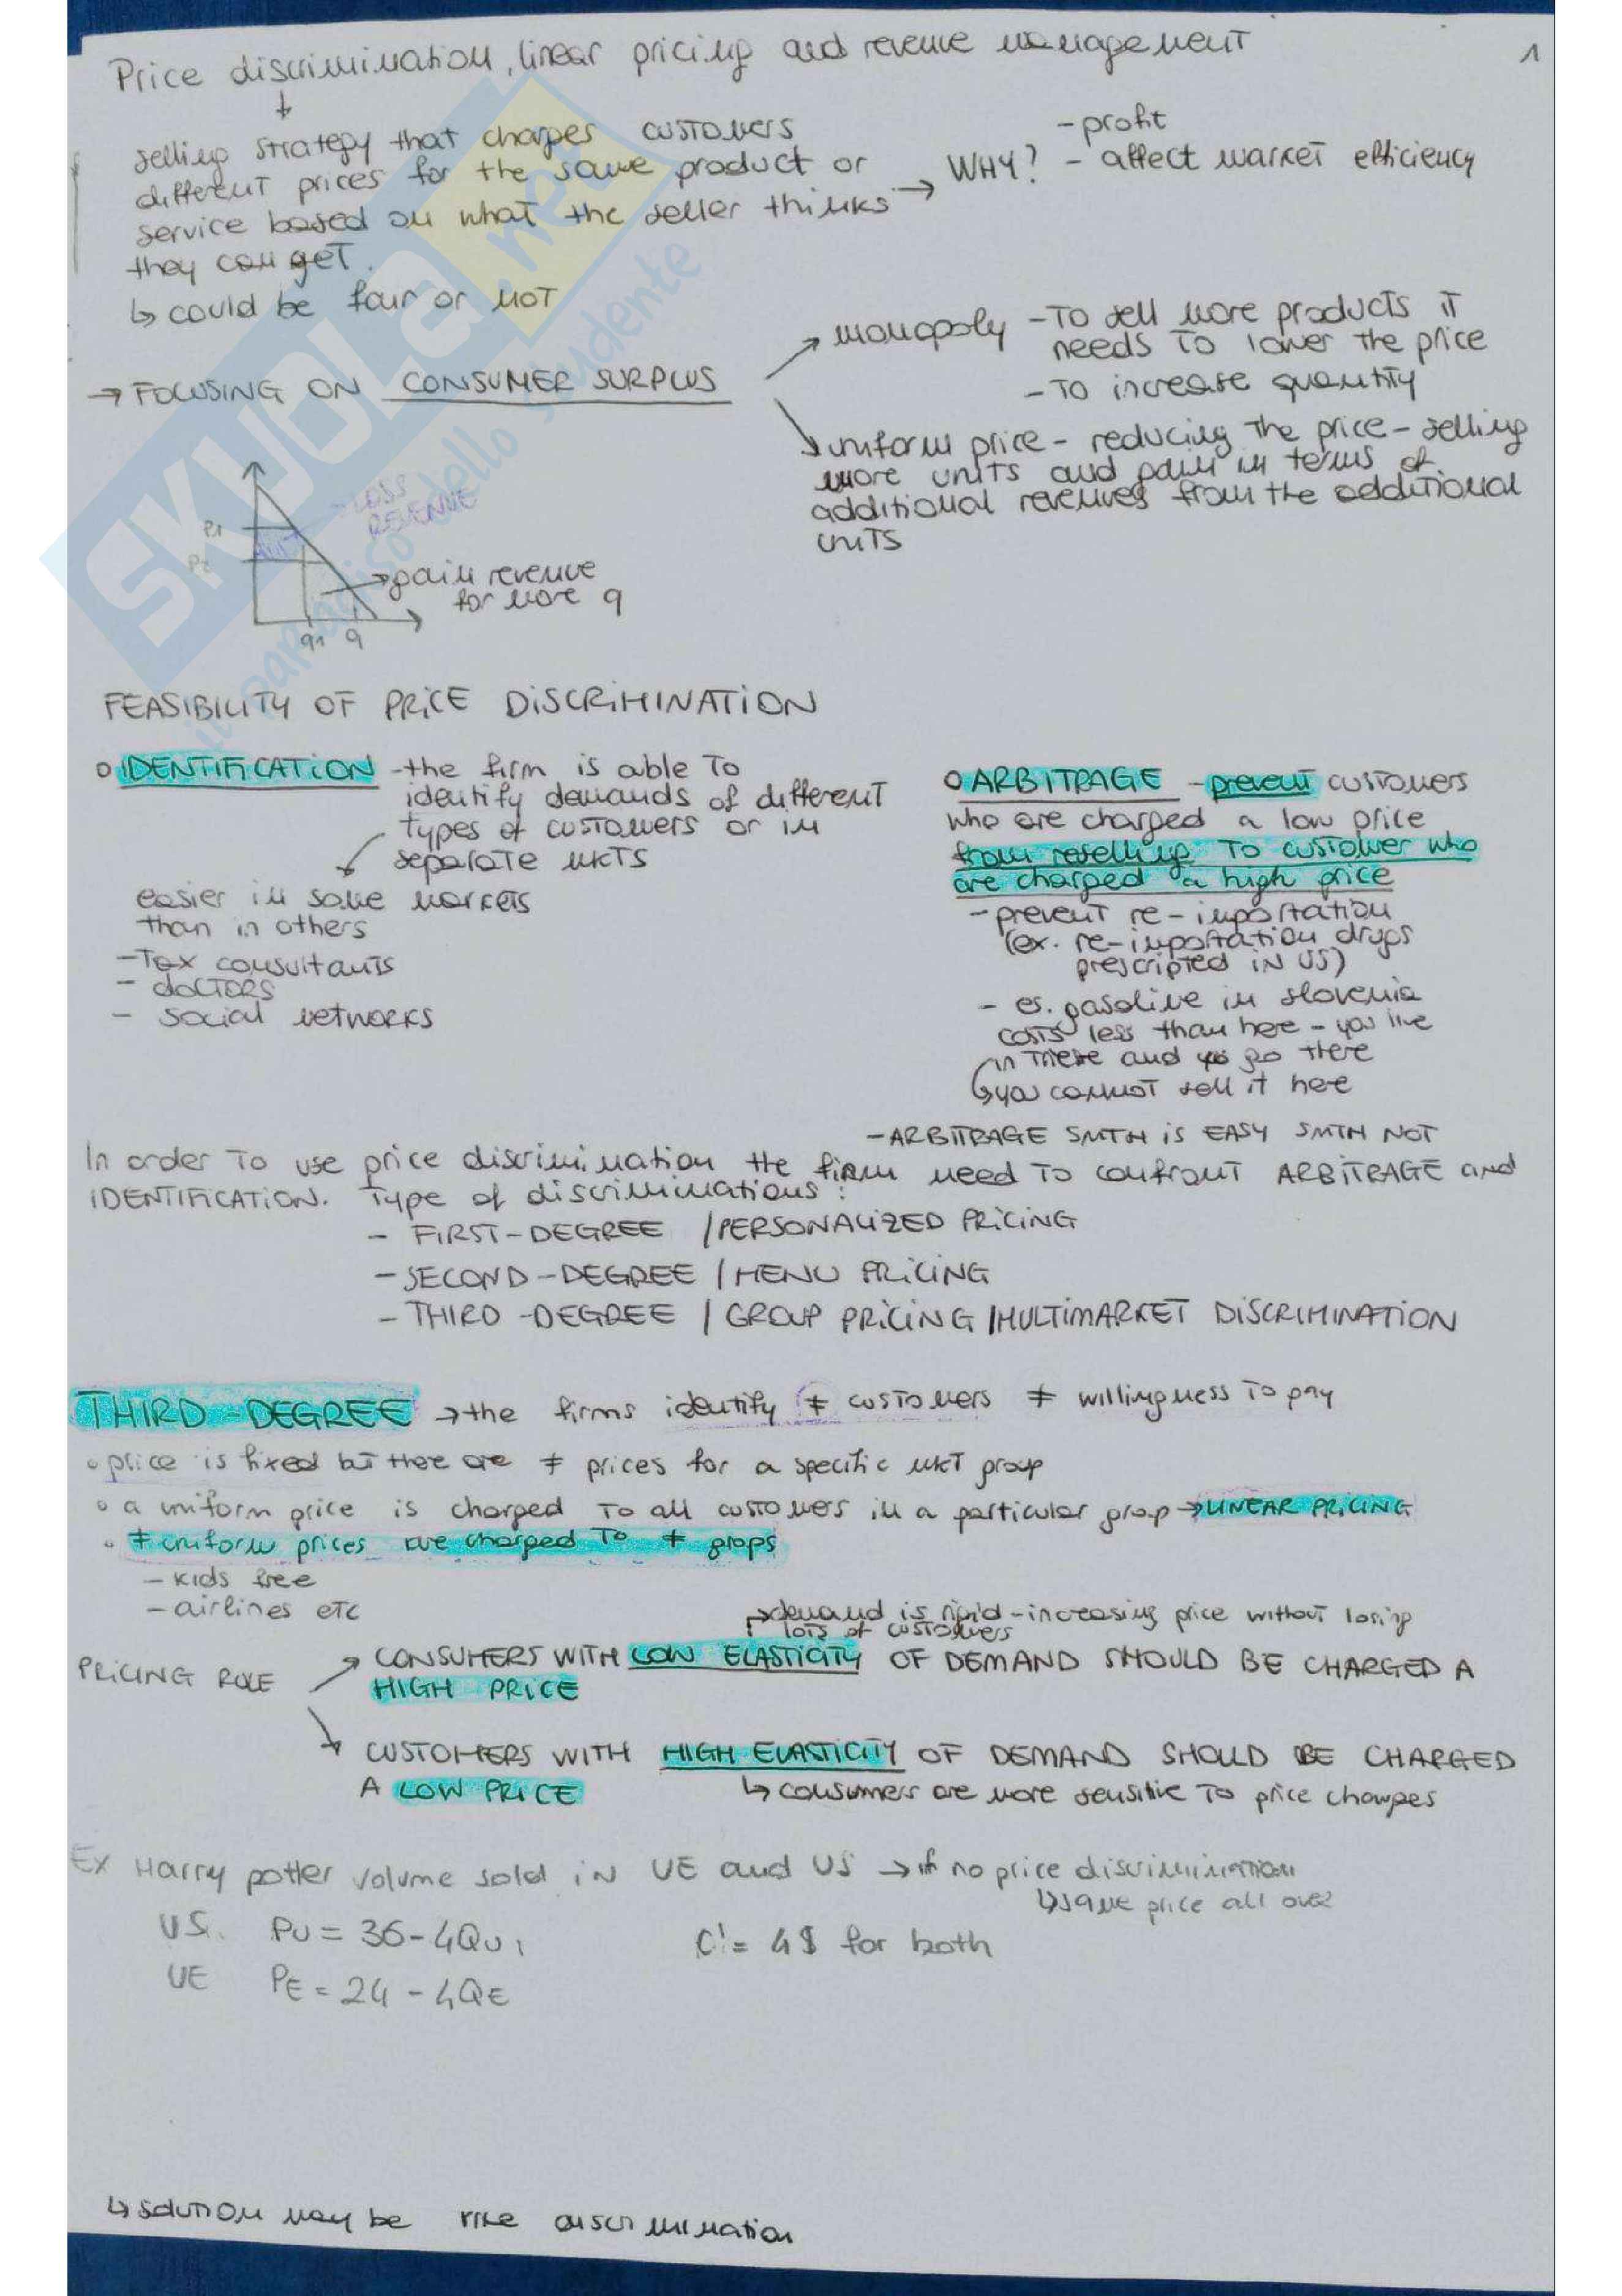 Price discrimination, linear pricing and revenue management
1
selling strategy that charges customers
different prices for the same product or
service based on what the seller thinks
they can get.
↳ could be fair or not
→ WHY?
- profit
- affect market efficiency
→ FOCUSING ON CONSUMER SURPLUS
monopoly - To sell more products it
needs to lower the price
- To increase quantity
uniform price - reducing the price - selling
more units and gain in terms of
additional revenues from the additional
units
LOSS
REVENUE
P1
P2
gain revenue
for more q
q1 q
FEASIBILITY OF PRICE DISCRIMINATION
o IDENTIFICATION - the firm is able to
identify demands of different
types of customers or in
separate MKTS
easier in some markets
than in others
- Tax consultants
- doctors
- social networks
o ARBITRAGE - prevent customers
who are charged a low price
from reselling to customer who
are charged a high price
- prevent re-importation
(ex. re-importation drugs
prescripted in US)
- es. gasoline in Slovenia
costs less than here - you live
in Trieste and go there
↳ you cannot sell it here
- ARBITRAGE SMTH IS EASY SMTH NOT
In order to use price discrimination the firm need to confront ARBITRAGE and
IDENTIFICATION. Type of discriminations:
- FIRST-DEGREE / PERSONALIZED PRICING
- SECOND-DEGREE / MENU PRICING
- THIRD-DEGREE / GROUP PRICING / MULTIMARKET DISCRIMINATION
THIRD-DEGREE → the firms identify ≠ customers ≠ willingness to pay
o price is fixed but there are ≠ prices for a specific MKT group
o a uniform price is charged to all customers in a particular grop → LINEAR PRICING
o ≠ uniform prices are charged to ≠ grops
- kids free
- airlines etc
→ demand is rigid - increasing price without losing
lots of customers
PRICING ROLE
CONSUMERS WITH LOW ELASTICITY OF DEMAND SHOULD BE CHARGED A
HIGH PRICE
CUSTOMERS WITH HIGH ELASTICITY OF DEMAND SHOULD BE CHARGED
A LOW PRICE
↳ consumers are more sensitive to price changes
Ex Harry potter volume sold in UE and US → if no price discrimination
↳ same price all over
US. PU = 36 - 4QU
C' = 4$ for both
UE PE = 24 - 4QE
↳ solution may be discrimination
SKUOLA.net
il paradiso dello studente